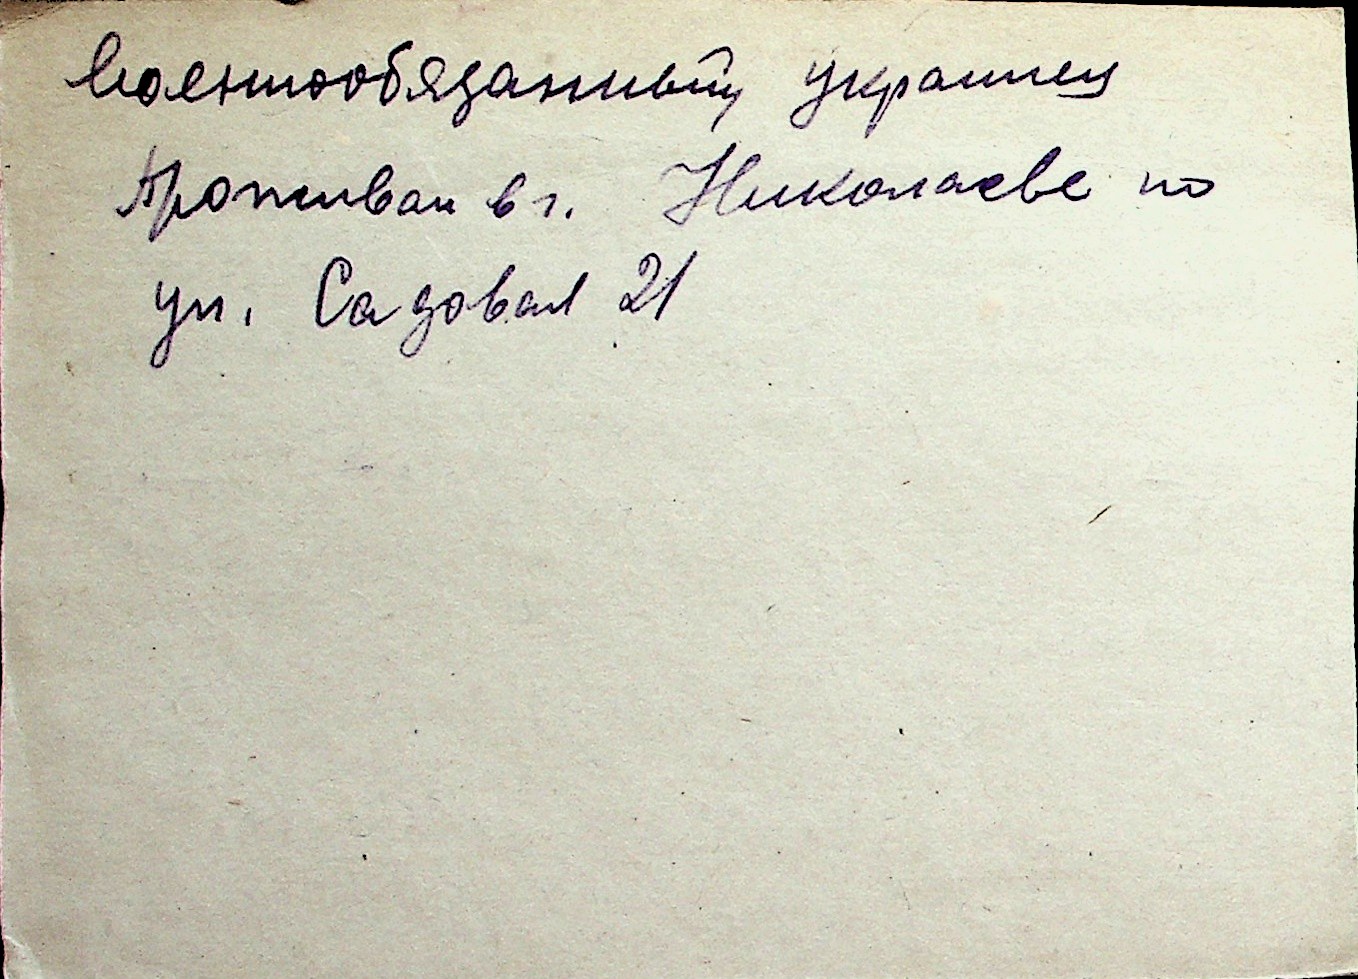 Военнообязанный, украинец
Проживал в г. Николаеве по
ул. Садовая 21